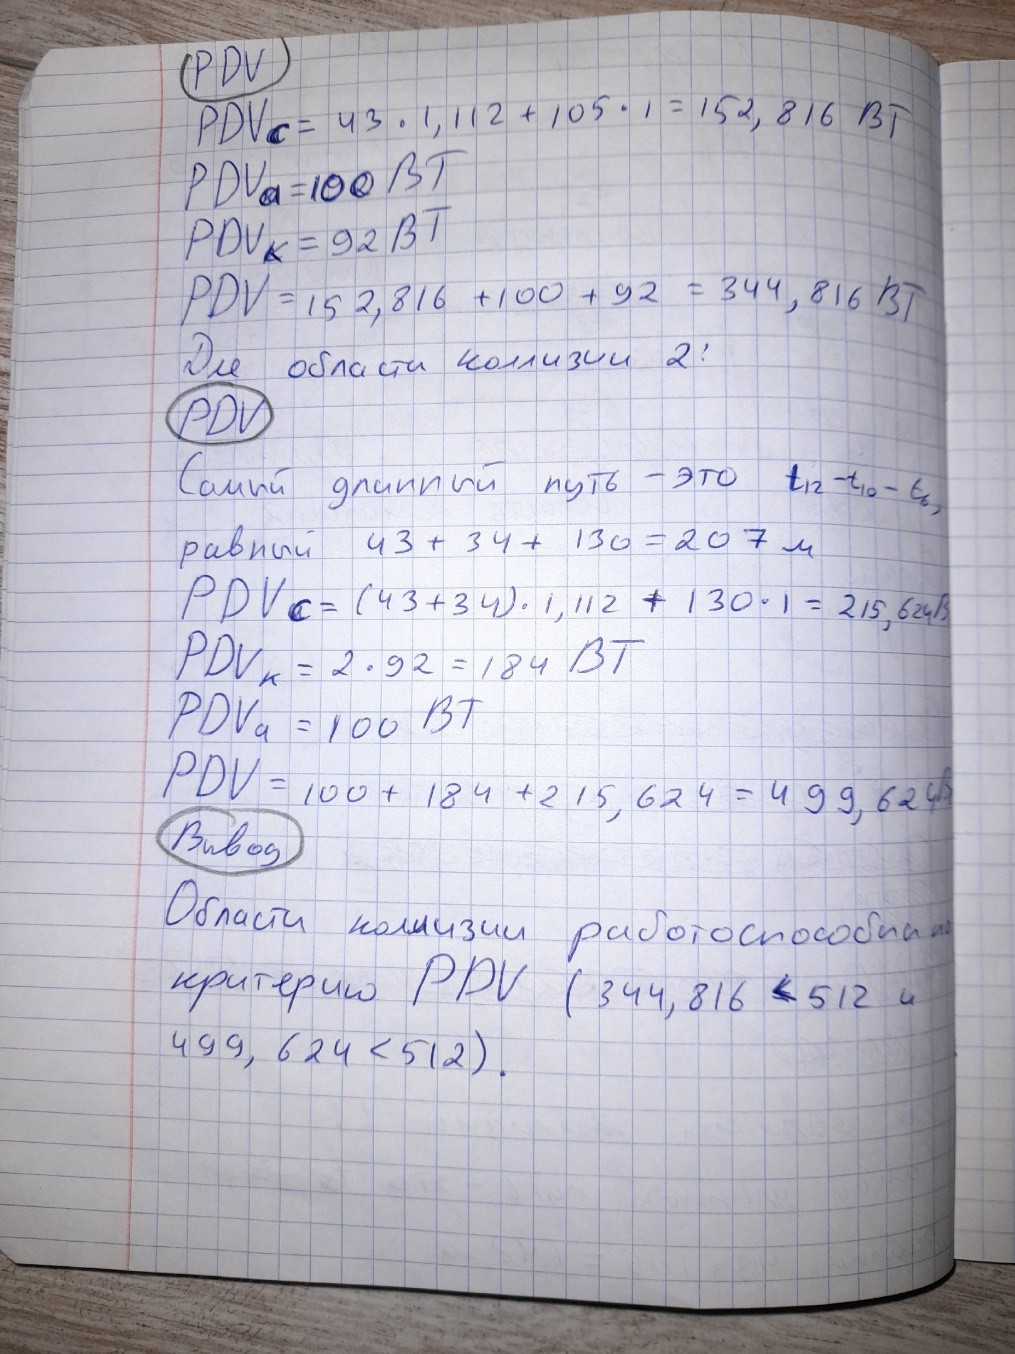 PDV
PDVс = 43 · 1,112 + 105 · 1 = 152,816 BT
PDVа = 100 BT
PDVк = 92 BT
PDV = 152,816 + 100 + 92 = 344,816 BT
Для области коллизии 2:
PDV
Самый длинный путь - это t12 - t10 - t6,
равный 43 + 34 + 130 = 207 м
PDVс = (43 + 34) · 1,112 + 130 · 1 = 215,624 B
PDVк = 2 · 92 = 184 BT
PDVа = 100 BT
PDV = 100 + 184 + 215,624 = 499,624 B
Вывод
Области коллизии работоспособны по
критерию PDV (344,816 < 512 и
499,624 < 512).